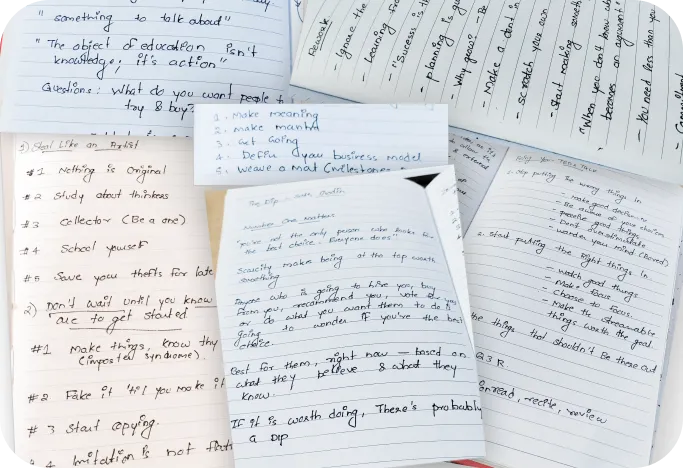 "something to talk about"
"The object of education isn't
knowledge; it's action"
Questions: What do you want people t
try & buy?
Rework
- Ignore the
- Learning fro
- "Success is th
- planning is gu
- Why grow?
- Make a dent in
- scratch your own
- Start making someth
"When you don't know wh
becomes an
- You need less than you
1. Make meaning
2. make mantra
3. Get Going
4. Define your business model
5. weave a Mat (milestones
1) Steal Like an Artist
#1 Nothing is Original
#2 Study about thinkers
#3 Collector (Be a one)
#4 School youself
#5 Save you thefts for late
2) Don't wait until you know
are to get started
#1 make things, know thy
(imposter syndrome).
#2 Fake it 'til you make it
#3 Start copying.
#4 imitation is not flatt
The Dip - Seth Godin
Number One Matters
"you've not the only person who looks for
the best choice. Everyone does"
Scarcity makes being at the top worth
something
Anyone who is going to hire you, buy
From you, recommend you, vote for you
or do what you want them to do is
going to wonder if you're the best
choice.
Best for them, right now — based on
what they believe & what they
know.
IF it is worth doing, There's probably
a DIP
1. stop putting the wrong things In
- Be aware of your choices
- positive good things
- Don't overstimulate
- wonder you mind (bored)
2. start putting the Right things In
- watch good things
- Make focus
- choose to focus.
- Make the
things worth the goal.
the things that shouldn't Be there Out
Q3R.
read, recite, review